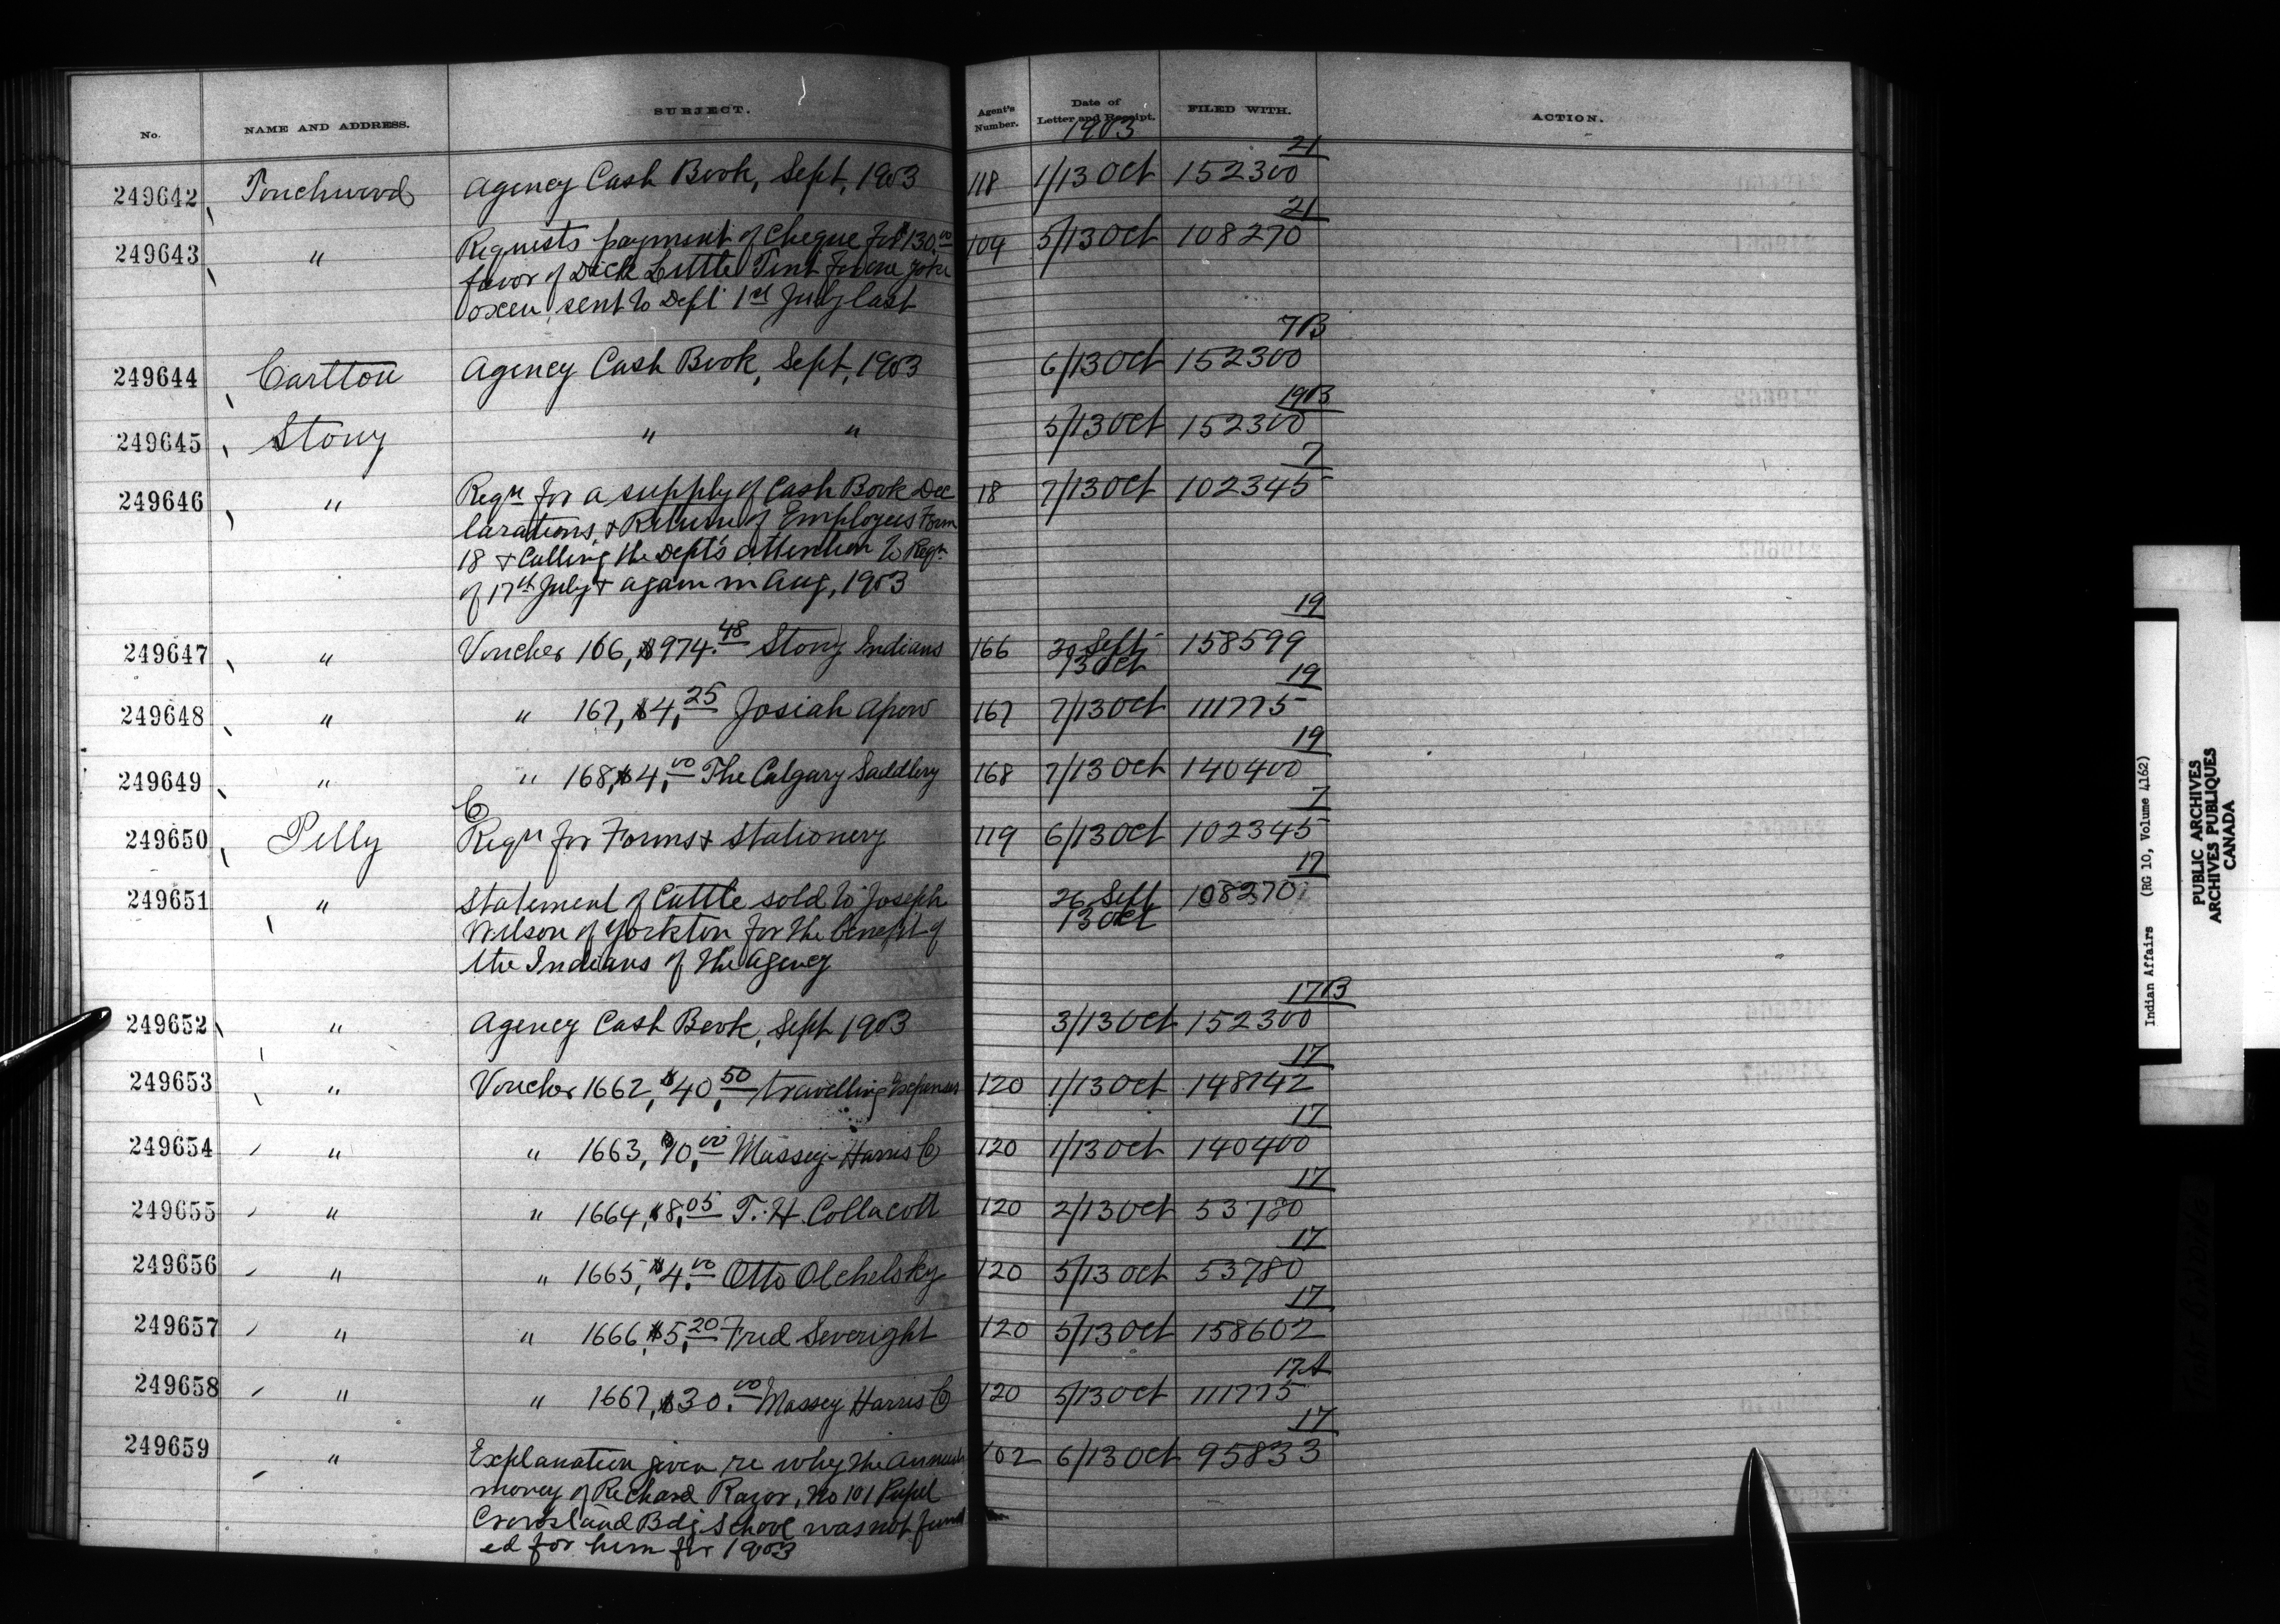 No. NAME AND ADDRESS. SUBJECT. Agent's Number. Date of Letter and Receipt. FILED WITH. ACTION.
1903
21
249642 Touchwood Agency Cash Book, Sept, 1903 118 1/13 Oct 152300
21
249643 " Requests payment of Cheque for $130.00 104 5/13 Oct 108270
favor of Dick Little Tent for one yoke
oxen, sent to Dept 1st July last
7B
249644 Carlton Agency Cash Book, Sept, 1903 6/13 Oct 152300
19B
249645 Stony " " 5/13 Oct 152300
7
249646 " Reqn for a supply of Cash Book Dec 18 7/13 Oct 102345
larations, & Return of Employees Form
18 & Calling the Dept's attention to Reqn
of 17th July & again in Aug, 1903
19
249647 " Voucher 166, $974.48 Stony Indians 166 30 Sept 158599
13 Oct
19
249648 " " 167, $4.25 Josiah 167 7/13 Oct 111775
19
249649 " " 168, $4.00 The Calgary Saddlery 168 7/13 Oct 140400
Co
7
249650 Pelly Reqn for Forms & Stationery 119 6/13 Oct 102345
17
249651 " Statement of Cattle sold to Joseph 26 Sept 108270
Wilson of Yorkton for the benefit of 13 Oct
the Indians of the Agency
17B
249652 " Agency Cash Book, Sept 1903 3/13 Oct 152300
17
249653 " Voucher 1662, $40.50 travelling Expenses 120 1/13 Oct 148742
17
249654 " " 1663, $10.00 Massey-Harris Co 120 1/13 Oct 140400
17
249655 " " 1664, $8.05 T. H. Collacott 120 2/13 Oct 53780
17
249656 " " 1665, $4.00 Otto Olchelsky 120 5/13 Oct 53780
17
249657 " " 1666, $5.20 Fred Severight 120 5/13 Oct 158602
17A
249658 " " 1667, $30.00 Massey Harris Co 120 5/13 Oct 111775
17
249659 " Explanation given re why the annuity 102 6/13 Oct 95833
money of Richard Razor, No 101 Pupil
Crowsland Bdg School was not fund
ed for him for 1903
Indian Affairs (RG 10, Volume 4162)
PUBLIC ARCHIVES
ARCHIVES PUBLIQUES
CANADA